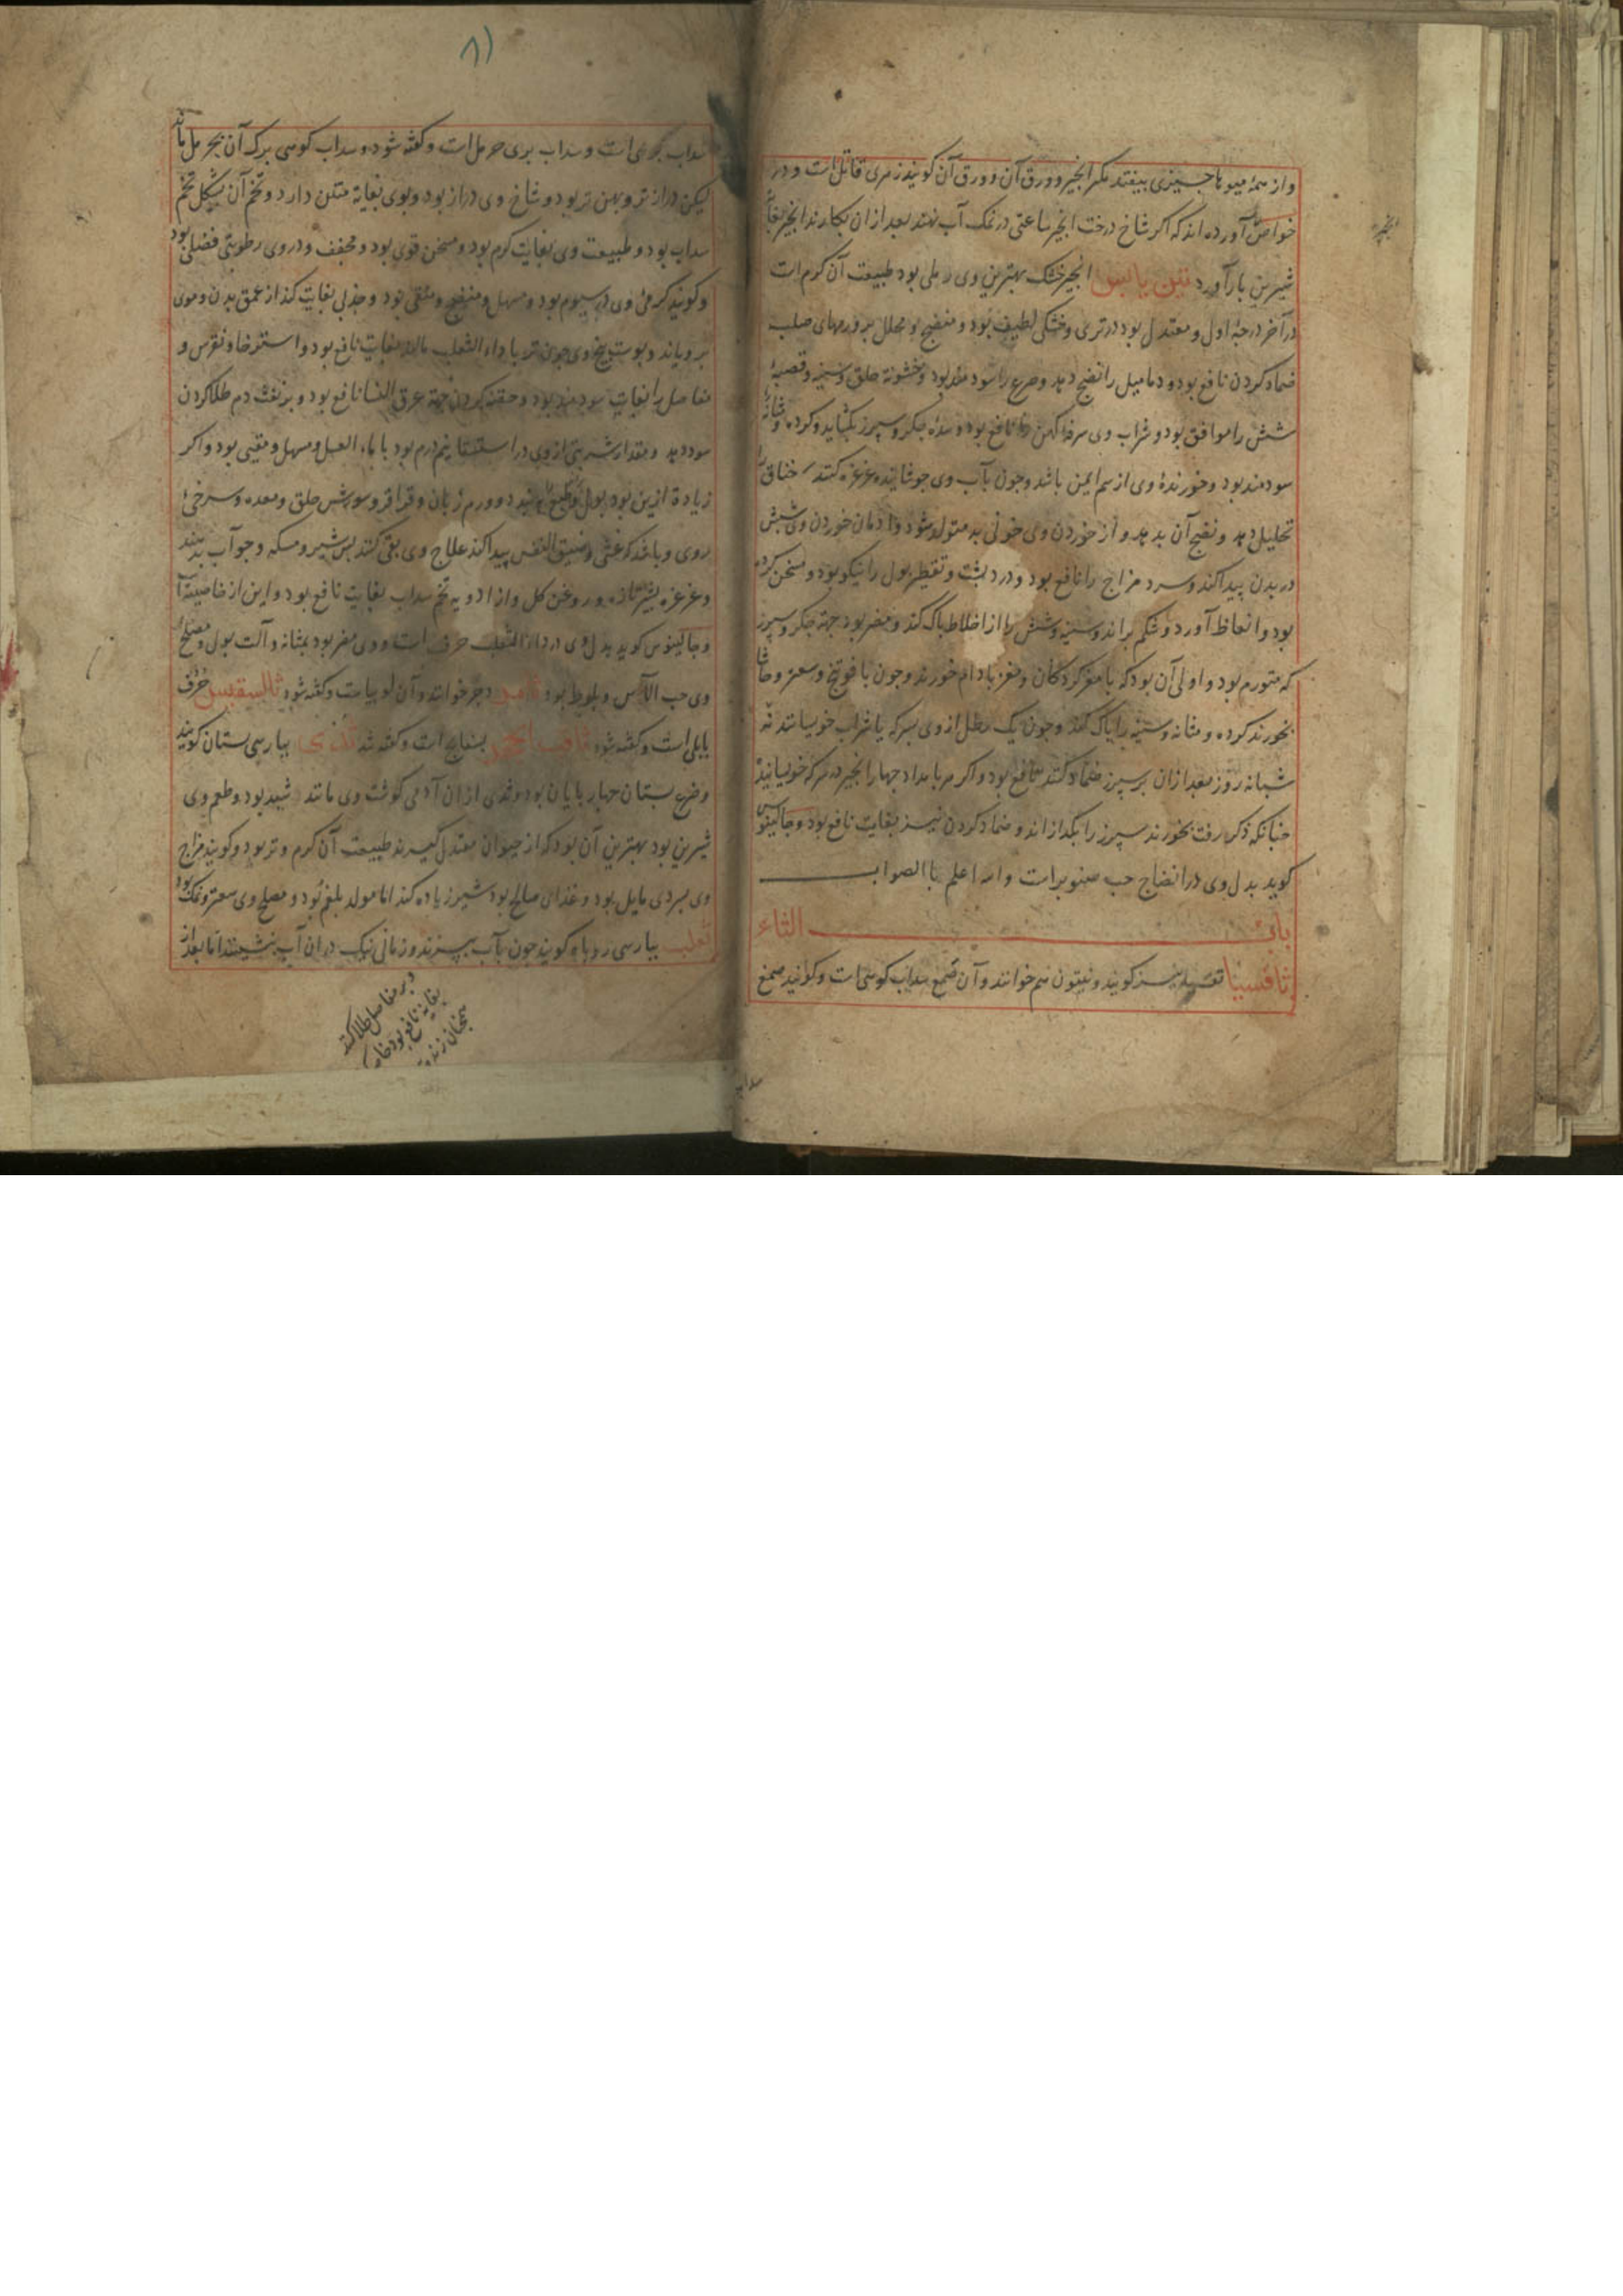 واز همهٔ میوها چیزی بیفتد مکر انجیر و ورق آن و ورق آن کویند زمری قاتل است و در
خواص آورده اند که اکر شاخ درخت انجیر ساعتی در نمک آب نهند بعد از ان بکارند انجیر بغایت
شیرین بار آورد تین یابس انجیر خشک بهترین وی رملی بود طبیعت آن کرم است
در آخر درجهٔ اول و معتدل بود در تری و خشکی لطیف بود و منضج و محلل بر ورمهای صلب
ضماد کردن نافع بود و دمامیل را نضج دهد و صرع را سودمند بود و خشونة حلق و سینه و قصبهٔ
شش را موافق بود و شراب وی سرفهٔ کهن را نافع بود و سدهٔ جکر و سپرز بکشاید و کرده و مثانه را
سودمند بود و خورندهٔ وی از سم ایمن باشد و چون بآب وی جوشانیده غرغره کنند خناق را
تحلیل دهد و نضج آن بدهد و از خوردن وی خونی بد متولد شود و ادمان خوردن وی شپش
در بدن پیدا کند و سرد مزاج را نافع بود و درد پشت و تقطیر بول را نیکو بود و مسخن کرده
بود و انعاظ آورد و شکم براند و سینه و شش را از اخلاط پاک کند و مضر بود جهة جکر و سپرز
که متورم بود و اولی آن بود که با مغز کردکان و مغز بادام خورند و چون با فوتنج و سعتر و حاشا
بخورند کرده و مثانه و سینه را پاک کند و چون یک رطل از وی بسرکه یا شراب خوسیانند نه
شبانه روز بعد از ان بر سپرز ضماد کنند نافع بود و اکر هر بامداد چهار انجیر در سرکه خوسیانیده
چنانکه ذکر رفت بخورند سپرز را بکدازاند و ضماد کردن نیز بغایت نافع بود و جالینوس
کوید بدل وی در انضاج حب صنوبر است و الله اعلم باالصواب
باب الثاء
ثافسیا تفسیه نیز کویند و نیتون هم خوانند و آن صمغ سداب کوهی است و کویند صمغ
سداب
انجیر
۸۱
سداب بحری است و سداب بری حرمل است و کفته شود و سداب کوهی برک آن بحرمل ماند
لیکن دراز تر و پهن تر بود و شاخ وی دراز بود و بوی بغایة منتن دارد و تخم آن بشکل تخم
سداب بود و طبیعت وی بغایت کرم بود و مسخن قوی بود و مجفف و در وی رطوبتی فضلی بود
و کویند کرمی وی در سیوم بود و مسهل و منضج و منقی بود و جذبی بغایت کند از عمق بدن و موی
برویاند و پوست بیخ وی چون تر با داء الثعلب مالند بغایت نافع بود و استرخا و نقرس و
مفاصل را بغایت سودمند بود و حقنه کردن جهة عرق النسا نافع بود و بر نفث دم طلا کردن
سود دهد و مقدار شربتی از وی در استسقا نیم درم بود با ماء العسل و مسهل و مقیی بود و اکر
زیادة ازین بود بول و طبع ببندد و ورم زبان و قراقر و سوزش حلق و معده و سرخی
روی و باشد که غشی و ضیق النفس پیدا کند علاج وی بقی کنند پس شیر و مسکه و جو آب بدهند
و غرغره بشیر تازه و روغن کل و از ادویه تخم سداب بغایت نافع بود و این از خاصیت آن
و جالینوس کوید بدل وی در داء الثعلب حرف است و وی مضر بود بمثانه و آلت بول و مصلح
وی حب الآس و بلوط بود ثامر دجر خوانند و آن لوبیاست و کفته شود ثالسقیس حرف
بابلی است و کفته شود ثاقب الحجر بسفایج است و کفته شد ثدی بپارسی پستان کویند
و ضرع پستان چهار پایان بود و ثدی از ان آدمی کوشت وی مانند شبید بود و طعم وی
شیرین بود بهترین آن بود که از حیوان معتدل کیرند طبیعت آن کرم و تر بود و کویند مزاج
وی بسردی مایل بود و غذای صالح بود شیر زیاده کند اما مولد بلغم بود و مصلح وی سعتر و نمک بود
ثعلب بپارسی روباه کویند چون بآب بپزند و زمانی نیک در ان آب نشینند اما بعد از
و بر مفاصل طلا کنند
بغایة نافع بود خاصه
همچنان زنده